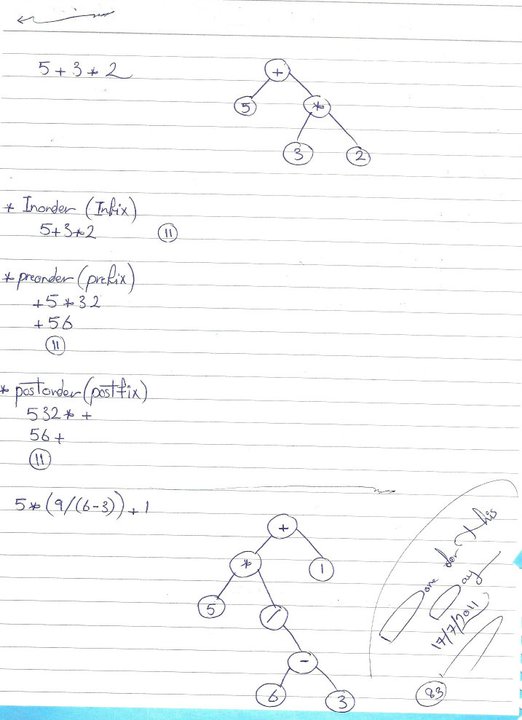 5+3*2
+
5
*
3
2
* Inorder (Infix)
5+3*2
11
* preorder (prefix)
+5*32
+56
11
* postorder (postfix)
532*+
56+
11
5*(9/(6-3))+1
+
*
1
5
/
-
6
3
Done for this
Day
17/7/2011
83